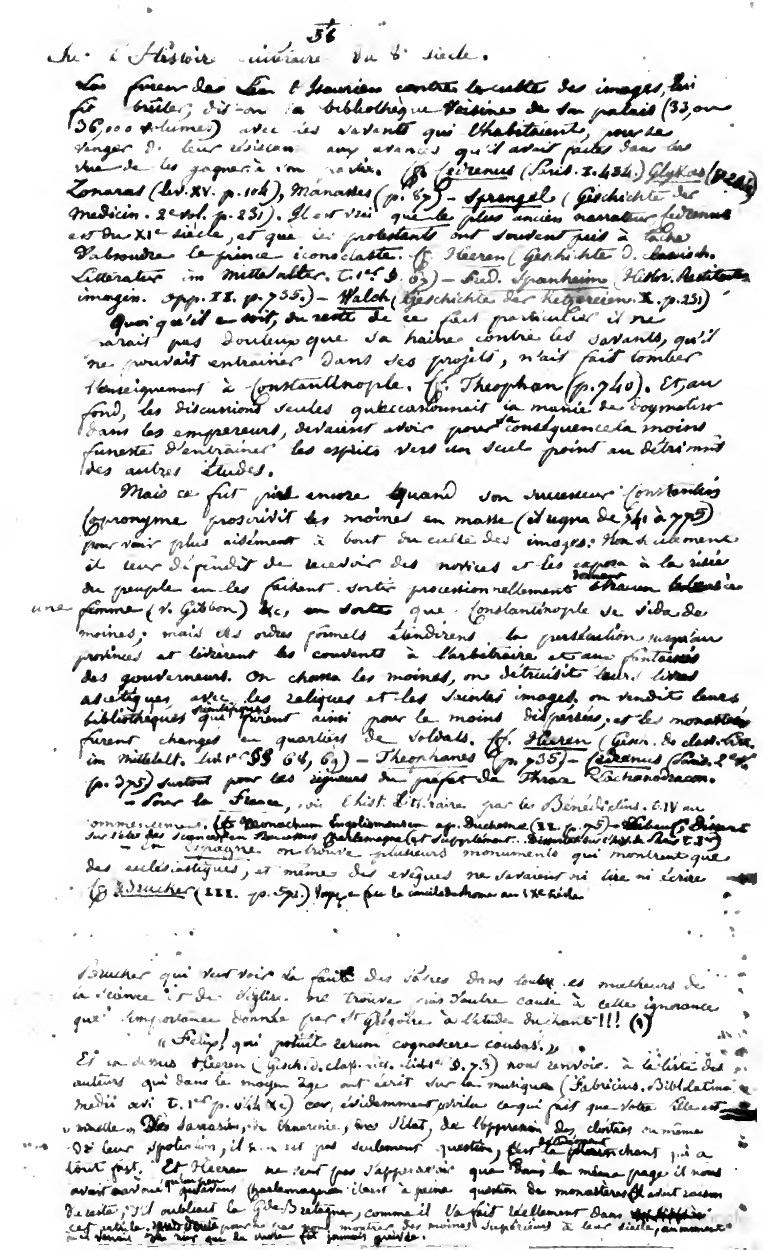 56
l'Histoire littéraire du 8e siècle.
La fureur de Léon l'Isaurien contre le culte des images, lui
fit brûler, dit-on la bibliothèque voisine de son palais (33, ou
36,000 volumes) avec les savants qui l'habitaient, pour se
venger de leur résistance aux avances qu'il avait faites dans les
vue de les gagner à son parti. (Cf. Cedrenus (Paris. I. 454.) Glykas (p.
Zonaras (liv. XV. p. 104), Manasses (p. 87) – Sprengel (Geschichte der
Medicin. 2e vol. p. 231). Il est vrai que le plus ancien narrateur Cedrenus
est du XIe siècle, et que les protestants ont souvent pris à tâche
d'absoudre le prince iconoclaste. Cf. Heeren (Geschichte d. classisch.
Litteratur im Mittelalter. t. 1er § 67) – Fred. Spanheim (Histor.
imagin. opp. II. p. 735.) – Walch (Geschichte der Ketzereien. X. p. 231)
Quoi qu'il en soit, du reste de ce fait particulier il ne
parait pas douteux que sa haine contre les savants, qu'il
ne pouvait entrainer dans ses projets, n'ait fait tomber
l'enseignement à Constantinople. Cf. Theophan (p. 740). Et, au
fond, les discussions seules qu'occasionnait la manie de dogmatiser
dans les empereurs, devaient avoir pour conséquence la moins
funeste d'entrainer les esprits vers un seul point au détriment
des autres études.
Mais ce fut pire encore quand son successeur Constantin
Copronyme proscrivit les moines en masse (il régna de 741 à 775)
pour voir plus aisément à bout du culte des images: Non seulement
il leur défendit de recevoir des novices et les exposa à la risée
du peuple en les faisant sortir processionnellement donnant chacun le bras à
une femme (v. Gibbon) &c, en sorte que Constantinople se vida de
moines; mais des ordres formels étendirent la persécution jusqu'aux
provinces et livrèrent les couvents à l'arbitraire et aux fantaisies
des gouverneurs. On chassa les moines, on détruisit leurs livres
ascétiques avec les reliques et les saintes images, on vendit leurs
bibliothèques qui furent ainsi pour le moins dispersées, et les monastères
furent changés en quartiers de soldats. Cf. Heeren (Gesch. d. class. Litt.
im Mittelalt. liv. 1er §§ 68, 69) – Theophanes (p. 735) – Cedrenus (Paris. 2e
(p. 375) surtout pour les rigueurs du préfet de Thrace Lachanodracon.
– Pour la France, voir l'hist. Littéraire par les Bénédictins. t. IV au
commencement. (Cf. Monachum Engolismensem ap. Duchesne (II. p. 75) – Lebeuf, Dissert
sur l'état des sciences Charlemagne (et supplément.
– en Espagne on trouve plusieurs monuments qui montrent que
des ecclésiastiques, et même des évêques ne savaient ni lire ni écrire
Cf. Brucker (III. p. 571.) au IXe siècle
Brucker qui veut voir la faute des Pâtres dans toutes les malheurs de
la science et de l'église. ne trouve pas d'autre cause à cette ignorance
que l'importance donnée par St Grégoire à l'étude du chant!!! (1)
« Felix! qui potuit rerum cognoscere causas.»
Et là dessus Heeren (Gesch. d. class. 1er §. 73) nous renvoie à la liste des
auteurs qui dans le moyen âge ont écrit sur la musique (Fabricius. Bibl. latina
medii ævi t. 1er p. 644 &c) car, évidemment voilà ce qui fait que votre fille est
muette. Des Sarrasins, de l'anarchie, de l'oppression des cloîtres ou même
de leur spoliation, il n'en est pas seulement question, c'est le plain chant qui a
tout fait. Et Heeren ne veut pas s'appercevoir que dans la même page il nous
qu'avant Charlemagne il est à peine question de monastères
Du reste, s'il oubliait la Gde Bretagne, comme il l'a fait réellement dans
cet article. pour ne pas nous montrer des moines supérieurs à leur siècle,